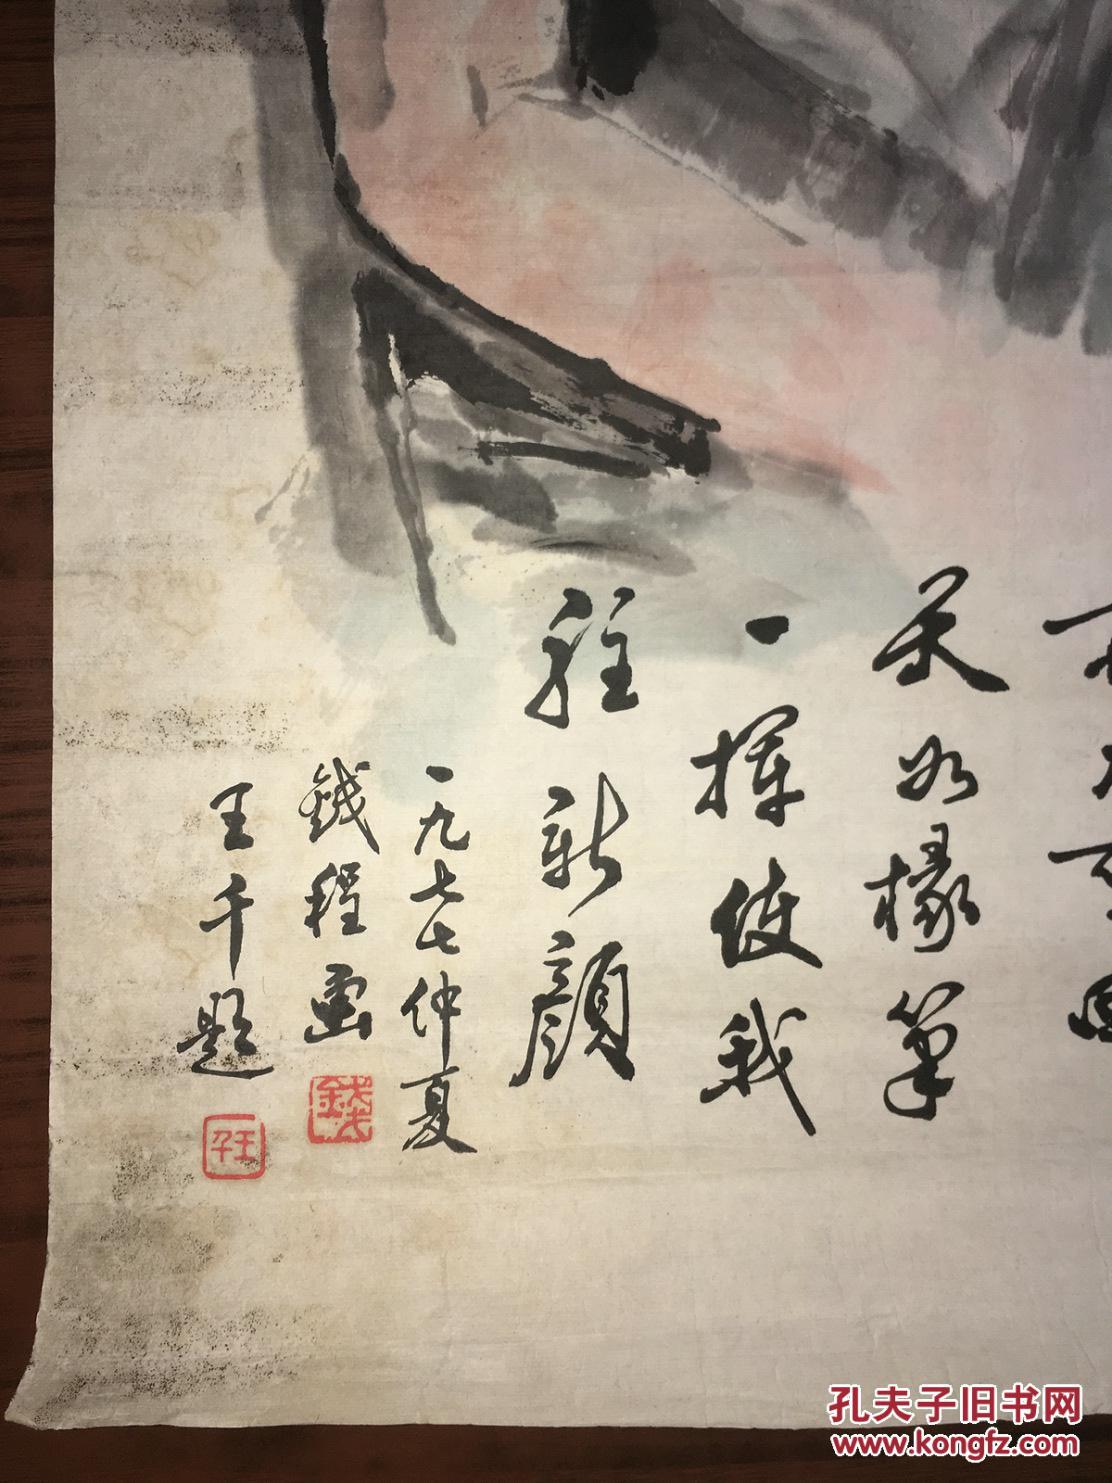 天如椽筆
一揮使我
新顏
一九七七仲夏
錢程畫
王千題
錢
王千
孔夫子旧书网
www.kongfz.com